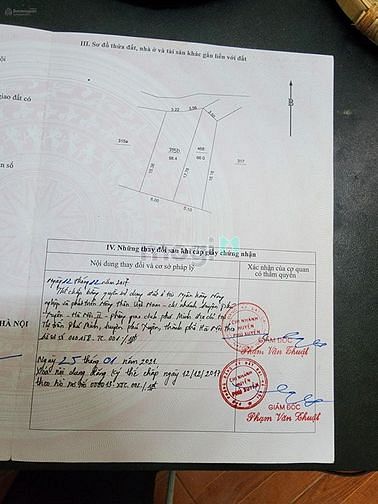 III. Sơ đồ thửa đất, nhà ở và tài sản khác gắn liền với đất
ội
giao đất có
B
3.22
3.56
315a
315b
98.4
468
66.0
317
17.78
5.00
5.10
ền số
IV. Những thay đổi sau khi cấp giấy chứng nhận
Nội dung thay đổi và cơ sở pháp lý
Xác nhận của cơ quan
có thẩm quyền
Ngày 12 tháng 12 năm 2017
Thế chấp bằng quyền sử dụng đất ở tại Ngân hàng Nông
nghiệp và phát triển Nông thôn Việt Nam - chi nhánh huyện Phú
Xuyên - Hà Nội II - phòng giao dịch Phú Minh địa chỉ tại
Thị trấn Phú Minh, huyện Phú Xuyên, thành phố Hà Nội theo
CHI NHÁNH
HUYỆN
PHÚ XUYÊN
GIÁM ĐỐC
Phạm Văn Thuật
HÀ NỘI
Ngày 25 tháng 01 năm 2021
Xóa nội dung đăng ký thế chấp ngày 12/12/2017
theo hồ sơ số
CHI NHÁNH
HUYỆN
PHÚ XUYÊN
GIÁM ĐỐC
Phạm Văn Thuật